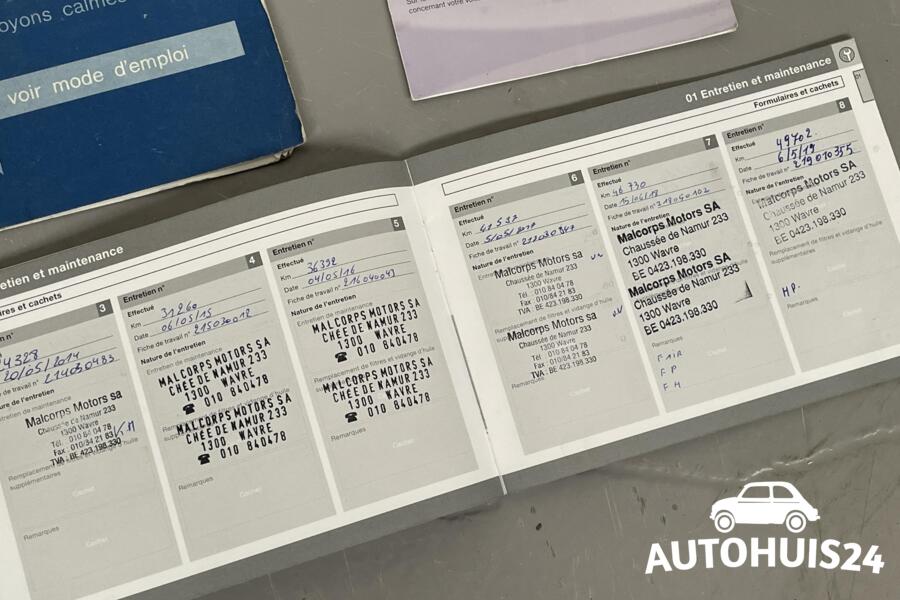 oyons calmes
voir mode d'emploi
concernant votre
etien et maintenance
res et cachets
3
4328
20/05/2014
Fiche de travail n° 214050485
Nature de l'entretien
Entretien de maintenance
Malcorps Motors SA
Chaussée de Namur 233
1300 Wavre
Tél. : 010 84 04 78
Fax : 010/84 21 83
TVA : BE 423.198.330
Remplacement de filtres et vidange d'huile
supplémentaires
Cachet
Remarques
Cachet
Entretien n° 4
Effectué
Km 31260
Date 06/05/15
Fiche de travail n° 215030012
Nature de l'entretien
Entretien de maintenance
MALCORPS MOTORS SA
CHÉE DE NAMUR 233
1300 WAVRE
☎ 010 840478
MALCORPS MOTORS SA
CHÉE DE NAMUR 233
1300 WAVRE
☎ 010 840478
Cachet
Remarques
Cachet
Entretien n° 5
Effectué
Km 36392
Date 04/05/16
Fiche de travail n° 216040043
Nature de l'entretien
Entretien de maintenance
MALCORPS MOTORS SA
CHÉE DE NAMUR 233
1300 WAVRE
☎ 010 840478
Remplacement de filtres et vidange d'huile
MALCORPS MOTORS SA
CHÉE DE NAMUR 233
1300 WAVRE
☎ 010 840478
Remarques
Cachet
01 Entretien et maintenance
Formulaires et cachets
01
Entretien n° 6
Effectué
Km 41537
Date 5/05/2017
Fiche de travail n°
Nature de l'entretien
Malcorps Motors sa
Chaussée de Namur 233
1300 Wavre
Tél. : 010 84 04 78
Fax : 010/84 21 83
TVA : BE 423.198.330
Remplacement de filtres et vidange d'huile
Malcorps Motors sa
Chaussée de Namur 233
1300 Wavre
Tél. : 010 84 04 78
Fax : 010/84 21 83
TVA : BE 423.198.330
Remarques
Cachet
Entretien n° 7
Effectué
Km 46 730
Date 15/06/18
Fiche de travail n° 218060102
Nature de l'entretien
Malcorps Motors SA
Chaussée de Namur 233
1300 Wavre
BE 0423.198.330
Malcorps Motors SA
Chaussée de Namur 233
1300 Wavre
BE 0423.198.330
Remarques
F AIR
F P
F H
Cachet
Entretien n° 8
Effectué
Km 49702
Date 6/5/19
Fiche de travail n° 219010355
Nature de l'entretien
Malcorps Motors SA
Chaussée de Namur 233
1300 Wavre
BE 0423.198.330
Remplacement de filtres et vidange d'huile
supplémentaires
Cachet
H.P.
Remarques
Cachet
AUTOHUIS24